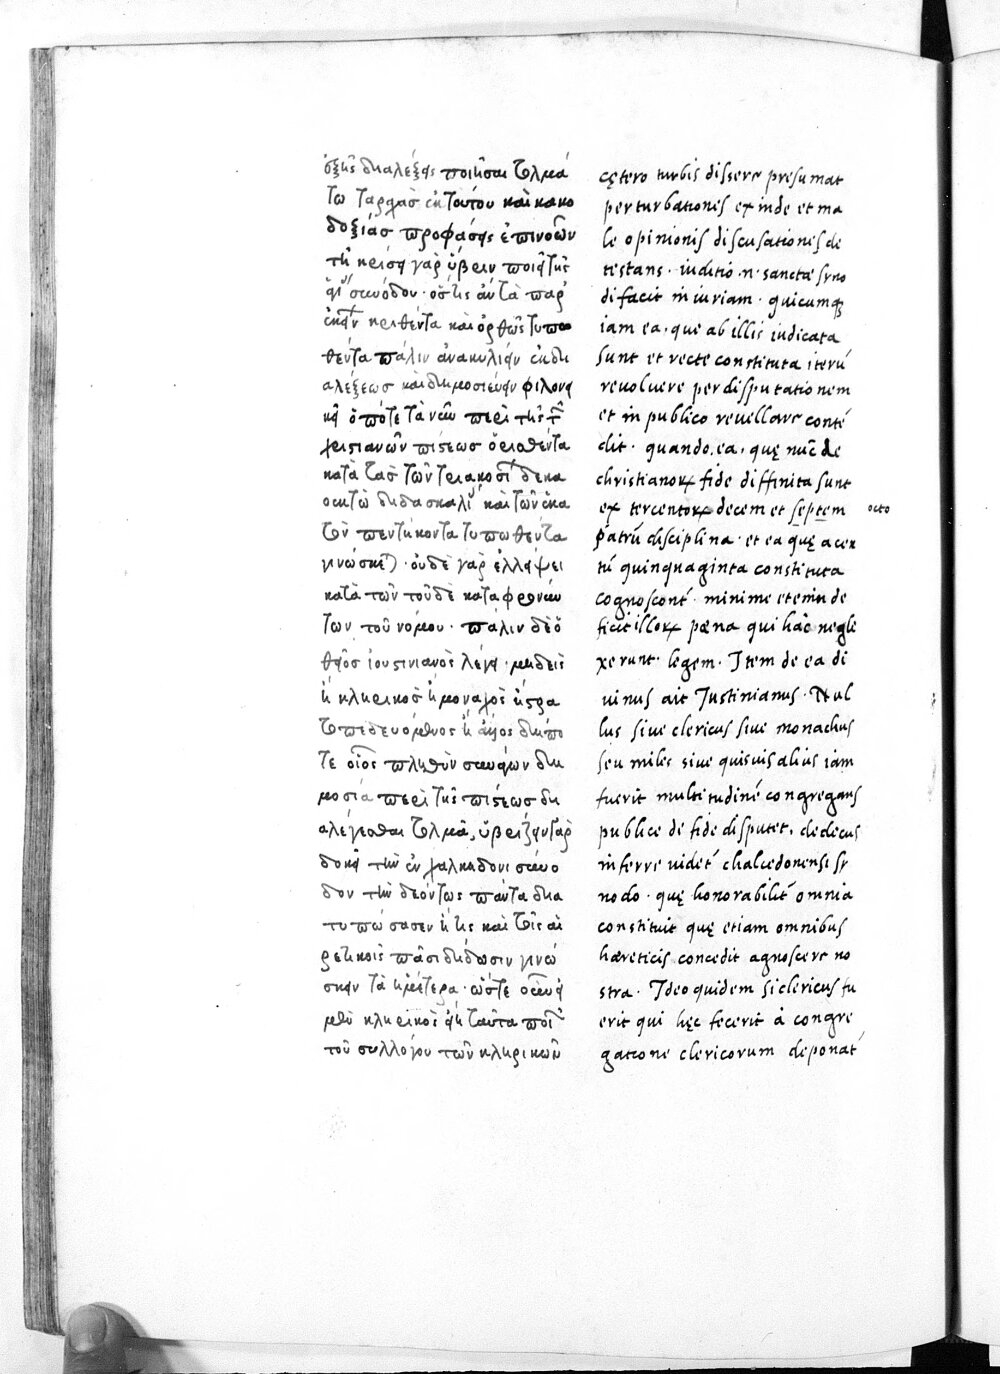 ἑξῆς διαλέξεις ποιῆσαι τολμά
τω ταραχὰσ ἐκ τούτου καὶ κακο
δοξίασ προφάσεις ἐπινοῶν
τῆ κρίσει γὰρ ὕβριν ποιεῖ τῆς
ἁγί συνόδου· ὅστις ἂν τὰ παρ'
ἐκείνων κριθέντα καὶ ὀρθῶς τυπω
θέντα πάλιν ἀνακυλίειν ἐκ δι
αλέξεωσ καὶ δημοσιεύειν φιλονει
κεῖ ὁπότε τὰ νῦν περὶ τῆς τῶν
χριστιανῶν πίστεωσ ὁρισθέντα
κατὰ τὰσ τῶν τριακοσί δεκα
οκτὼ διδασκαλί καὶ τῶν ἑκα
τὸν πεντήκοντα τυπωθέντα
γινώσκετ· οὐδὲ γὰρ ἐλλείψει
κατὰ τῶν τοῦδε καταφρονούν
των τοῦ νόμου· πάλιν δὲ ὁ
θεῖοσ ἰουστινιανὸς λέγει· μηδεὶς
ἢ κληρικὸσ ἢ μοναχὸς ἢ στρα
τοπεδευόμενος ἢ ἄλλος δήπο
τε οἷος πλῆθυν συνάγων δη
μοσία περὶ τῆς πίστεωσ δι
αλέγεσθαι τολμᾶ, ὑβρίζειν γὰρ
δοκεῖ τὴν ἐν χαλκηδόνι σύνο
δον τὴν δεόντως πάντα δια
τυπώσασεν ἥτις καὶ τοῖς αἱ
ρετικοῖς πᾶσι δίδωσιν γινώ
σκειν τὰ ἡμέτερα· ὥστε οὖν εἰ
μὲν κληρικὸς εἴη ταῦτα ποι
τοῦ συλλόγου τῶν κληρικῶν
cętero turbis dissere presumat
perturbationes ex inde et ma
le opinionis discusationes de
testans · iuditio n̄ sanctæ syno
di facit in iuriam · quicumq
iam ea, que ab illis iudicata
sunt et recte constituta iterū
reuoluere per disputationem
et in publico reuellare conté
dit · quando, ea, quę nūc de
christianoꝝ fide diffinita sunt
ex tercentoꝝ decem et septem octo
patrū disciplina · et ea quę a cen
tū quinquaginta constituta
cognoscont́ · minime etenim de
ficit illoꝝ pœna qui hāc negle
xerunt legem · Item de ea di
uinus ait Justinianus · Nul
lus siue clericus siue monachus
seu miles siue quisuis alius iam
fuerit multitudiné congregans
publice de fide disputet, dedecus
inferre uidet́ chalcedonensi sy
nodo · quę honorabilit́ omnia
constituit quę etiam omnibus
hæreticis concedit agnoscere no
stra · Ideo quidem si clericus fu
erit qui hęc fecerit à congre
gatione clericorum deponat́